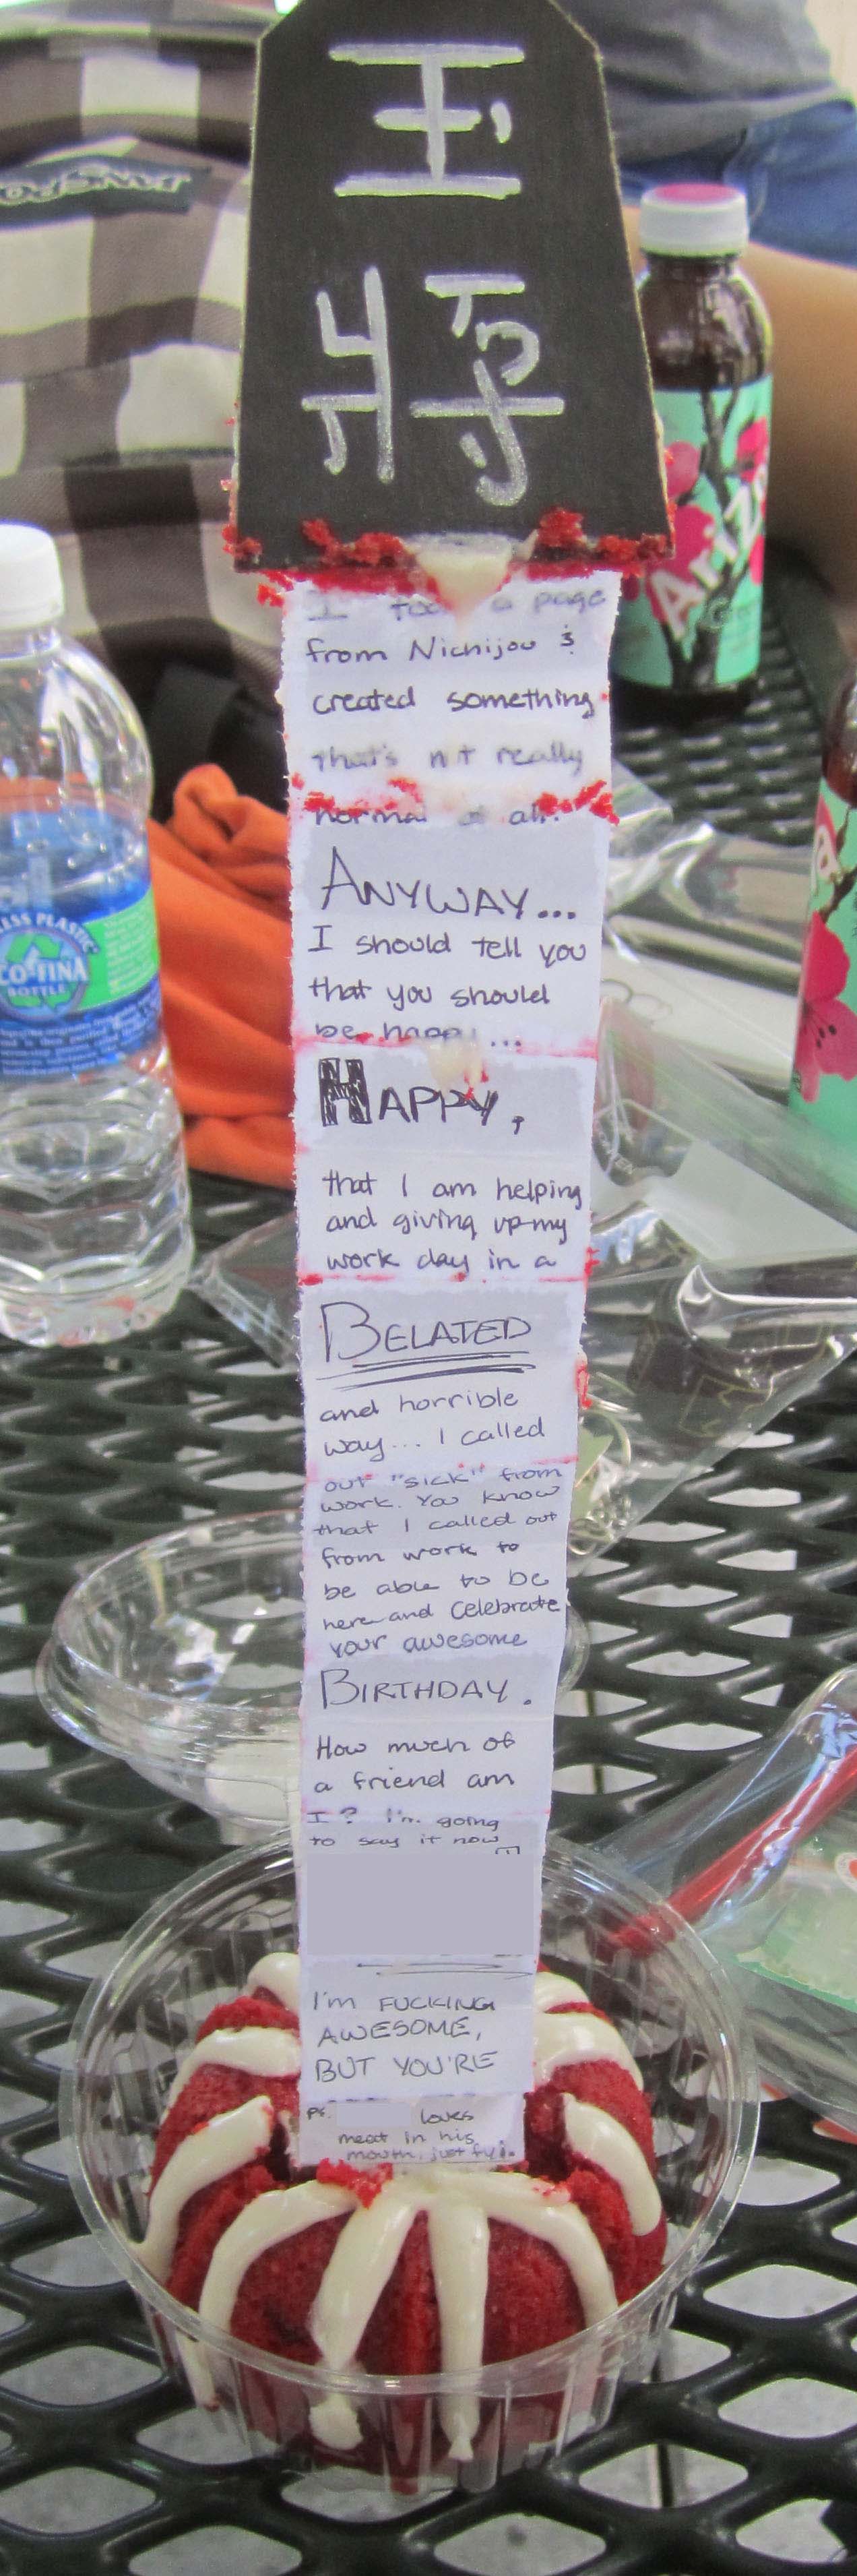 玉
将
JANSPO
I took a page
from Nichijou &
created something
that's not really
normal at all.
ANYWAY...
I should tell you
that you should
be happy...
HAPPY,
that I am helping
and giving up my
work day in a
BELATED
and horrible
way... I called
out "sick" from
work. You know
that I called out
from work to
be able to be
here and celebrate
your awesome
BIRTHDAY.
How much of
a friend am
I? I'm going
to say it now
I'm FUCKING
AWESOME,
BUT YOU'RE
PS. loves
meat in his
mouth, just fyi.
AriZo
LESS PLASTIC
ECO-FINA
BOTTLE